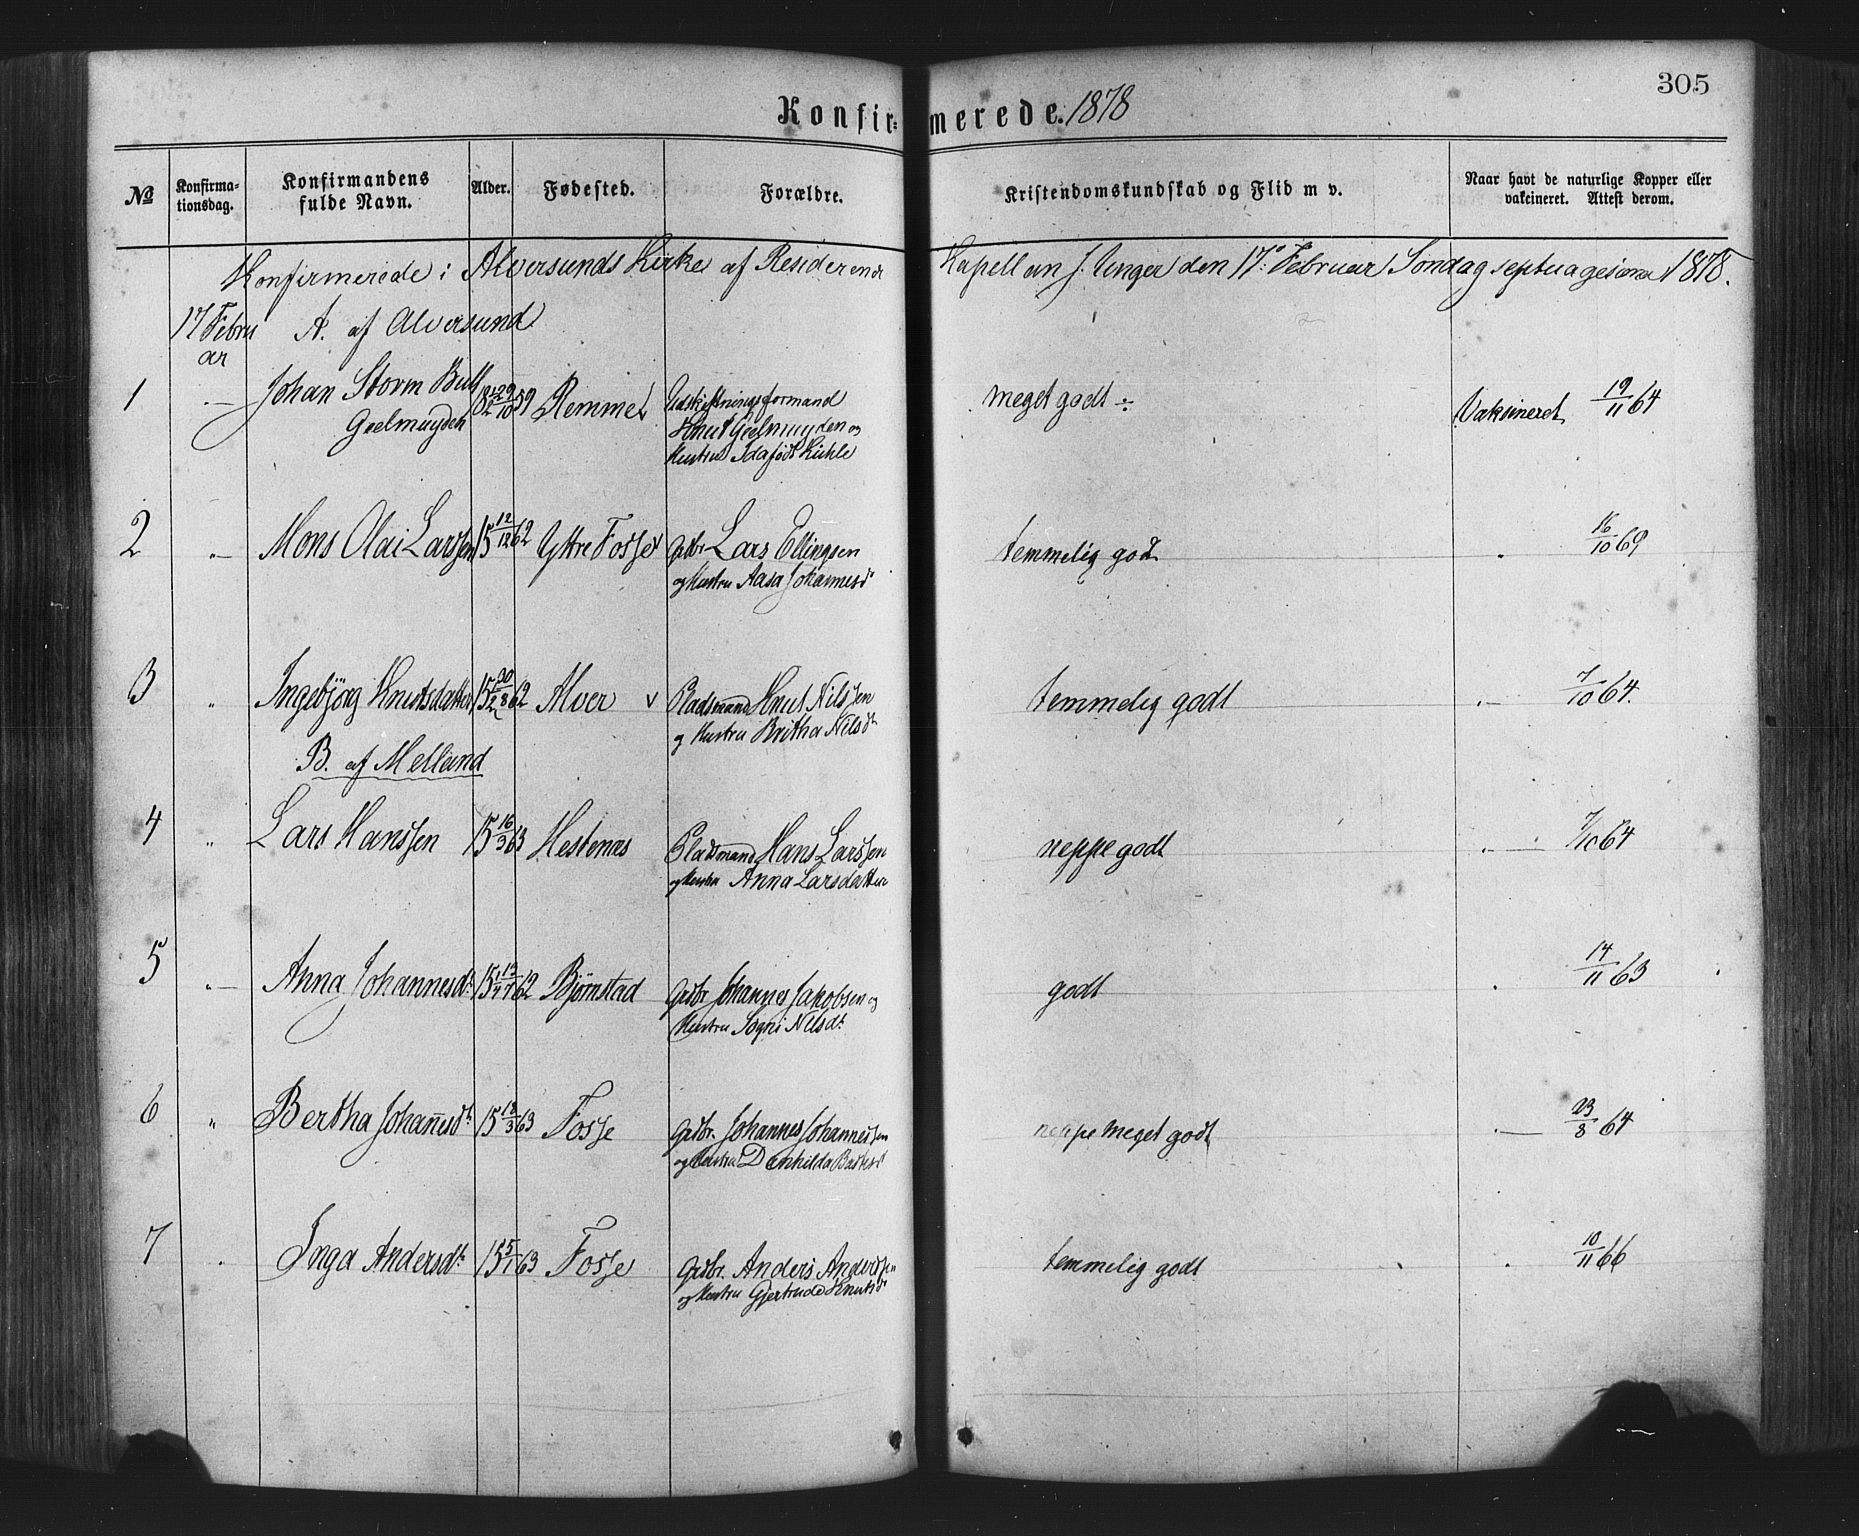 305
Konfirmerede. 1878
No
Konfirma-
tionsdag.
Konfirmandens
fulde Navn.
Alder.
Fødested.
Forældre.
Kristendomskundskab og Flid m v.
Naar havt de naturlige Kopper eller
vakcineret. Attest derom.
Konfirmerede i Alversunds Kirke af Residerende Kapellan J. Unger den 17: Februar Søndag septuagesima 1878.
17 Febru
ar
A. af Alversund
1 Johan Storm Bull
Geelmuyden
29/10 59 Remme
Udskiftningsformand
Knut Geelmuyden og
Hustru Ida født Kühle
meget godt
Vaksineret 19/11 64
2 " Mons Olai Larssen 15 12/12 62 Yttre Fosse
Grdbr Lars Ellingsen
og Hustru Aasa Johannesdr
temmelig godt
" 16/10 69
3 " Ingebjörg Knutsdatter 15 1/2 20/8 62 Alver v
Pladsmand Knut Nilssen
og Hustru Britha Nilsdtr
temmelig godt
" 7/10 64.
B. af Melland
4 " Lars Hanssen 15 16/3 63 Hestenæs
Pladsmand Hans Larssen
og Hustru Anna Larsdatter
neppe godt
" 7/10 64
5 " Anna Johannesdr 15 1/4 62 Bjørnstad
Grdbr Johannes Jakobsen og
Hustru Sogni Nilsdr
godt
" 14/11 63
6 " Bertha Johannesdr 15 18/3 63 Fosse
Grdbr. Johannes Johannessen
og Hustru
neppe meget godt
" 23/8 64
7 " Inga Andersdr 15 5/1 63 Fosse
Grdbr. Anders Anderssen
og Hustru Gjertrude Knutsdr
temmelig godt
" 10/11 66